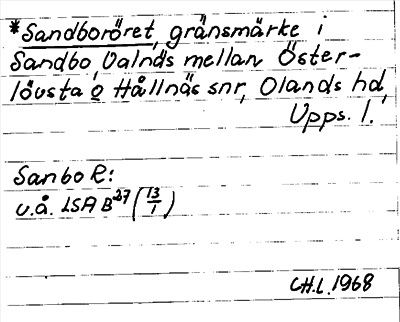 *Sandboröret, gränsmärke i
Sandbo, Valnäs mellan Öster-
lövsta o Hållnäs snr, Olands hd,
Upps. l.
Sanbo R:
u.å. LSA B 27 (13/1)
CH.L. 1968